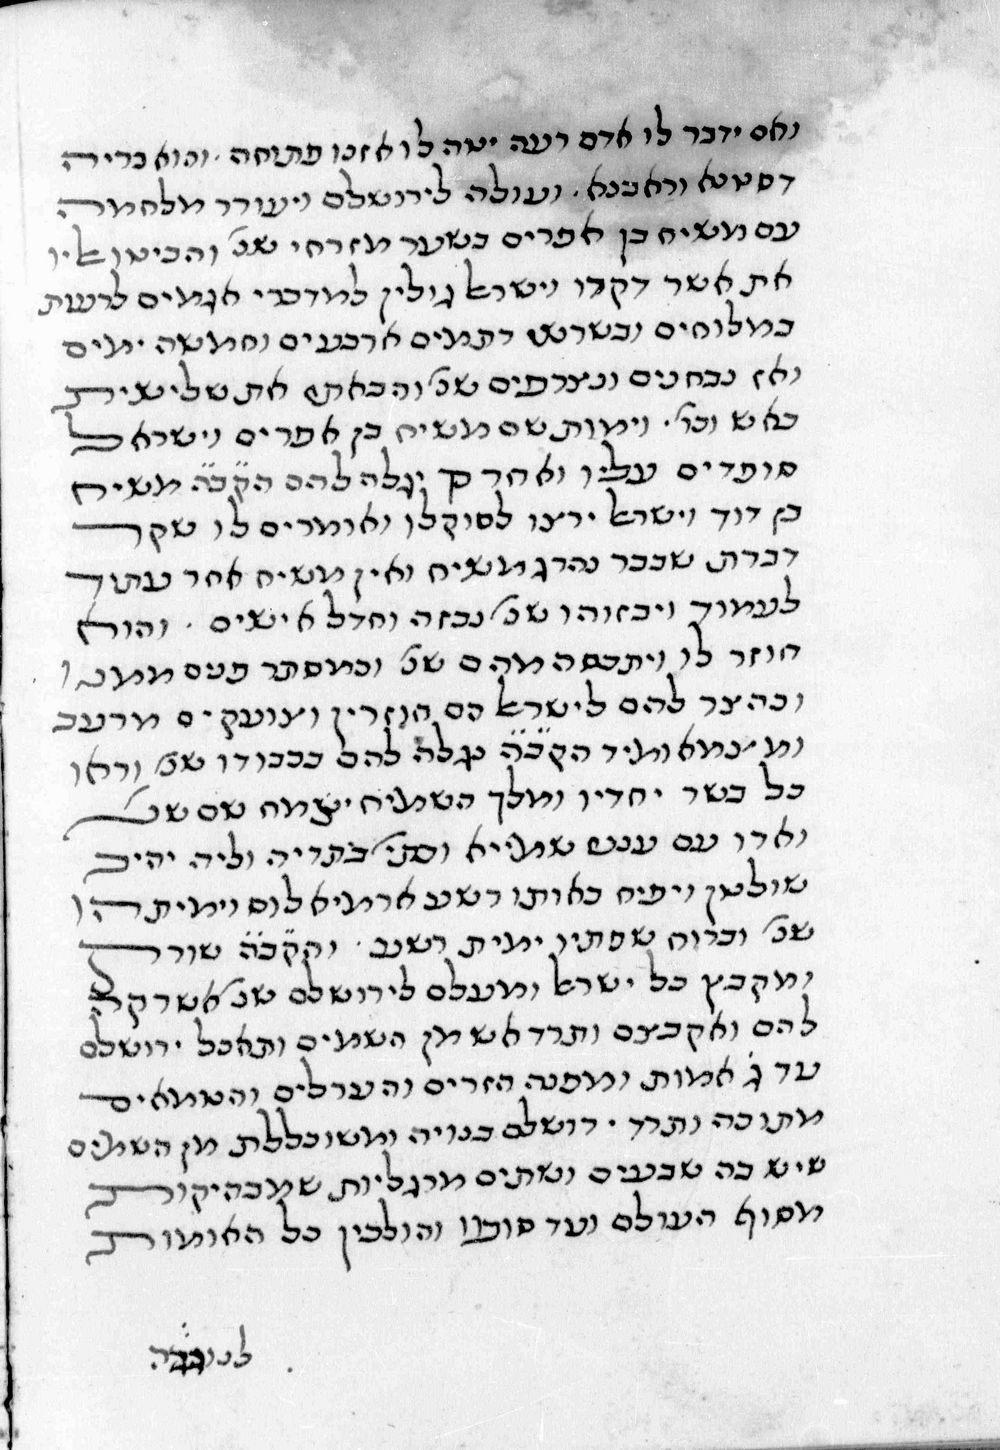 ואם ידבר לו אדם רעה יטה לו אזנו פתוחה. והוא בריה
דסטנא וראבנא. ועולה לירושלם ויעורר מלחמה
עם משיח בן אפרים בשער מזרחי שנ' והביטו אליו
את אשר דקרו וישראל גולין למדברי אגמים לרעות
במלוחים ובשרש רתמים ארבעים וחמשה ימים
ואז נבחנים ונצרפים שנ' והבאתי את שלישית
באש וכו'. וימות שם משיח בן אפרים וישראל
סופדים עליו ואחר כך יגלה להם הק̈ב̈ה̈ משיח
בן דוד וישראל ירצו לסוקלו ואומרים לו שקר
דברת שכבר נהרג משיח ואין משיח אחר עתיד
לעמוד ויבזוהו שנ' נבזה וחדל אישים. והוא
חוזר לו ויתכסה מהם שנ' וכמסתר פנים ממנו
ובהצר להם לישראל הם חוזרין וצועקים מרעב
ומצמא ומיד הק̈ב̈ה̈ נגלה להם בכבודו שנ' וראו
כל בשר יחדיו ומלך המשיח יצמח שם שנ'
וארו עם ענני שמייא וסני' בתריה וליה יהיב
שולטן ויפיח באותו רשע ארמיאלוס וימיתהו
שנ' וברוח שפתיו ימית רשע. והק̈ב̈ה̈ שורק
ומקבץ כל ישראל ומעלם לירושלם שנ' אשרקה
להם ואקבצם ותרד אש מן השמים ותאכל ירושלם
עד ג' אמות ומפנה הזרים והערלים והטמאים
מתוכה ותרד ירושלם בנויה ומשוכללת מן השמים
שיש בה שבעים ושתים מרגליות שמבהיקות
מסוף העולם ועד סופו והולכין כל האומות